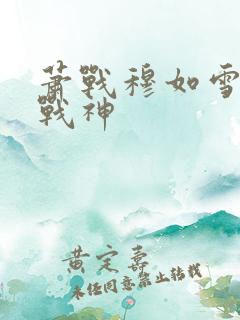 蕭戰穆如雪
戰神
黄定嘉
未经同意禁止转载